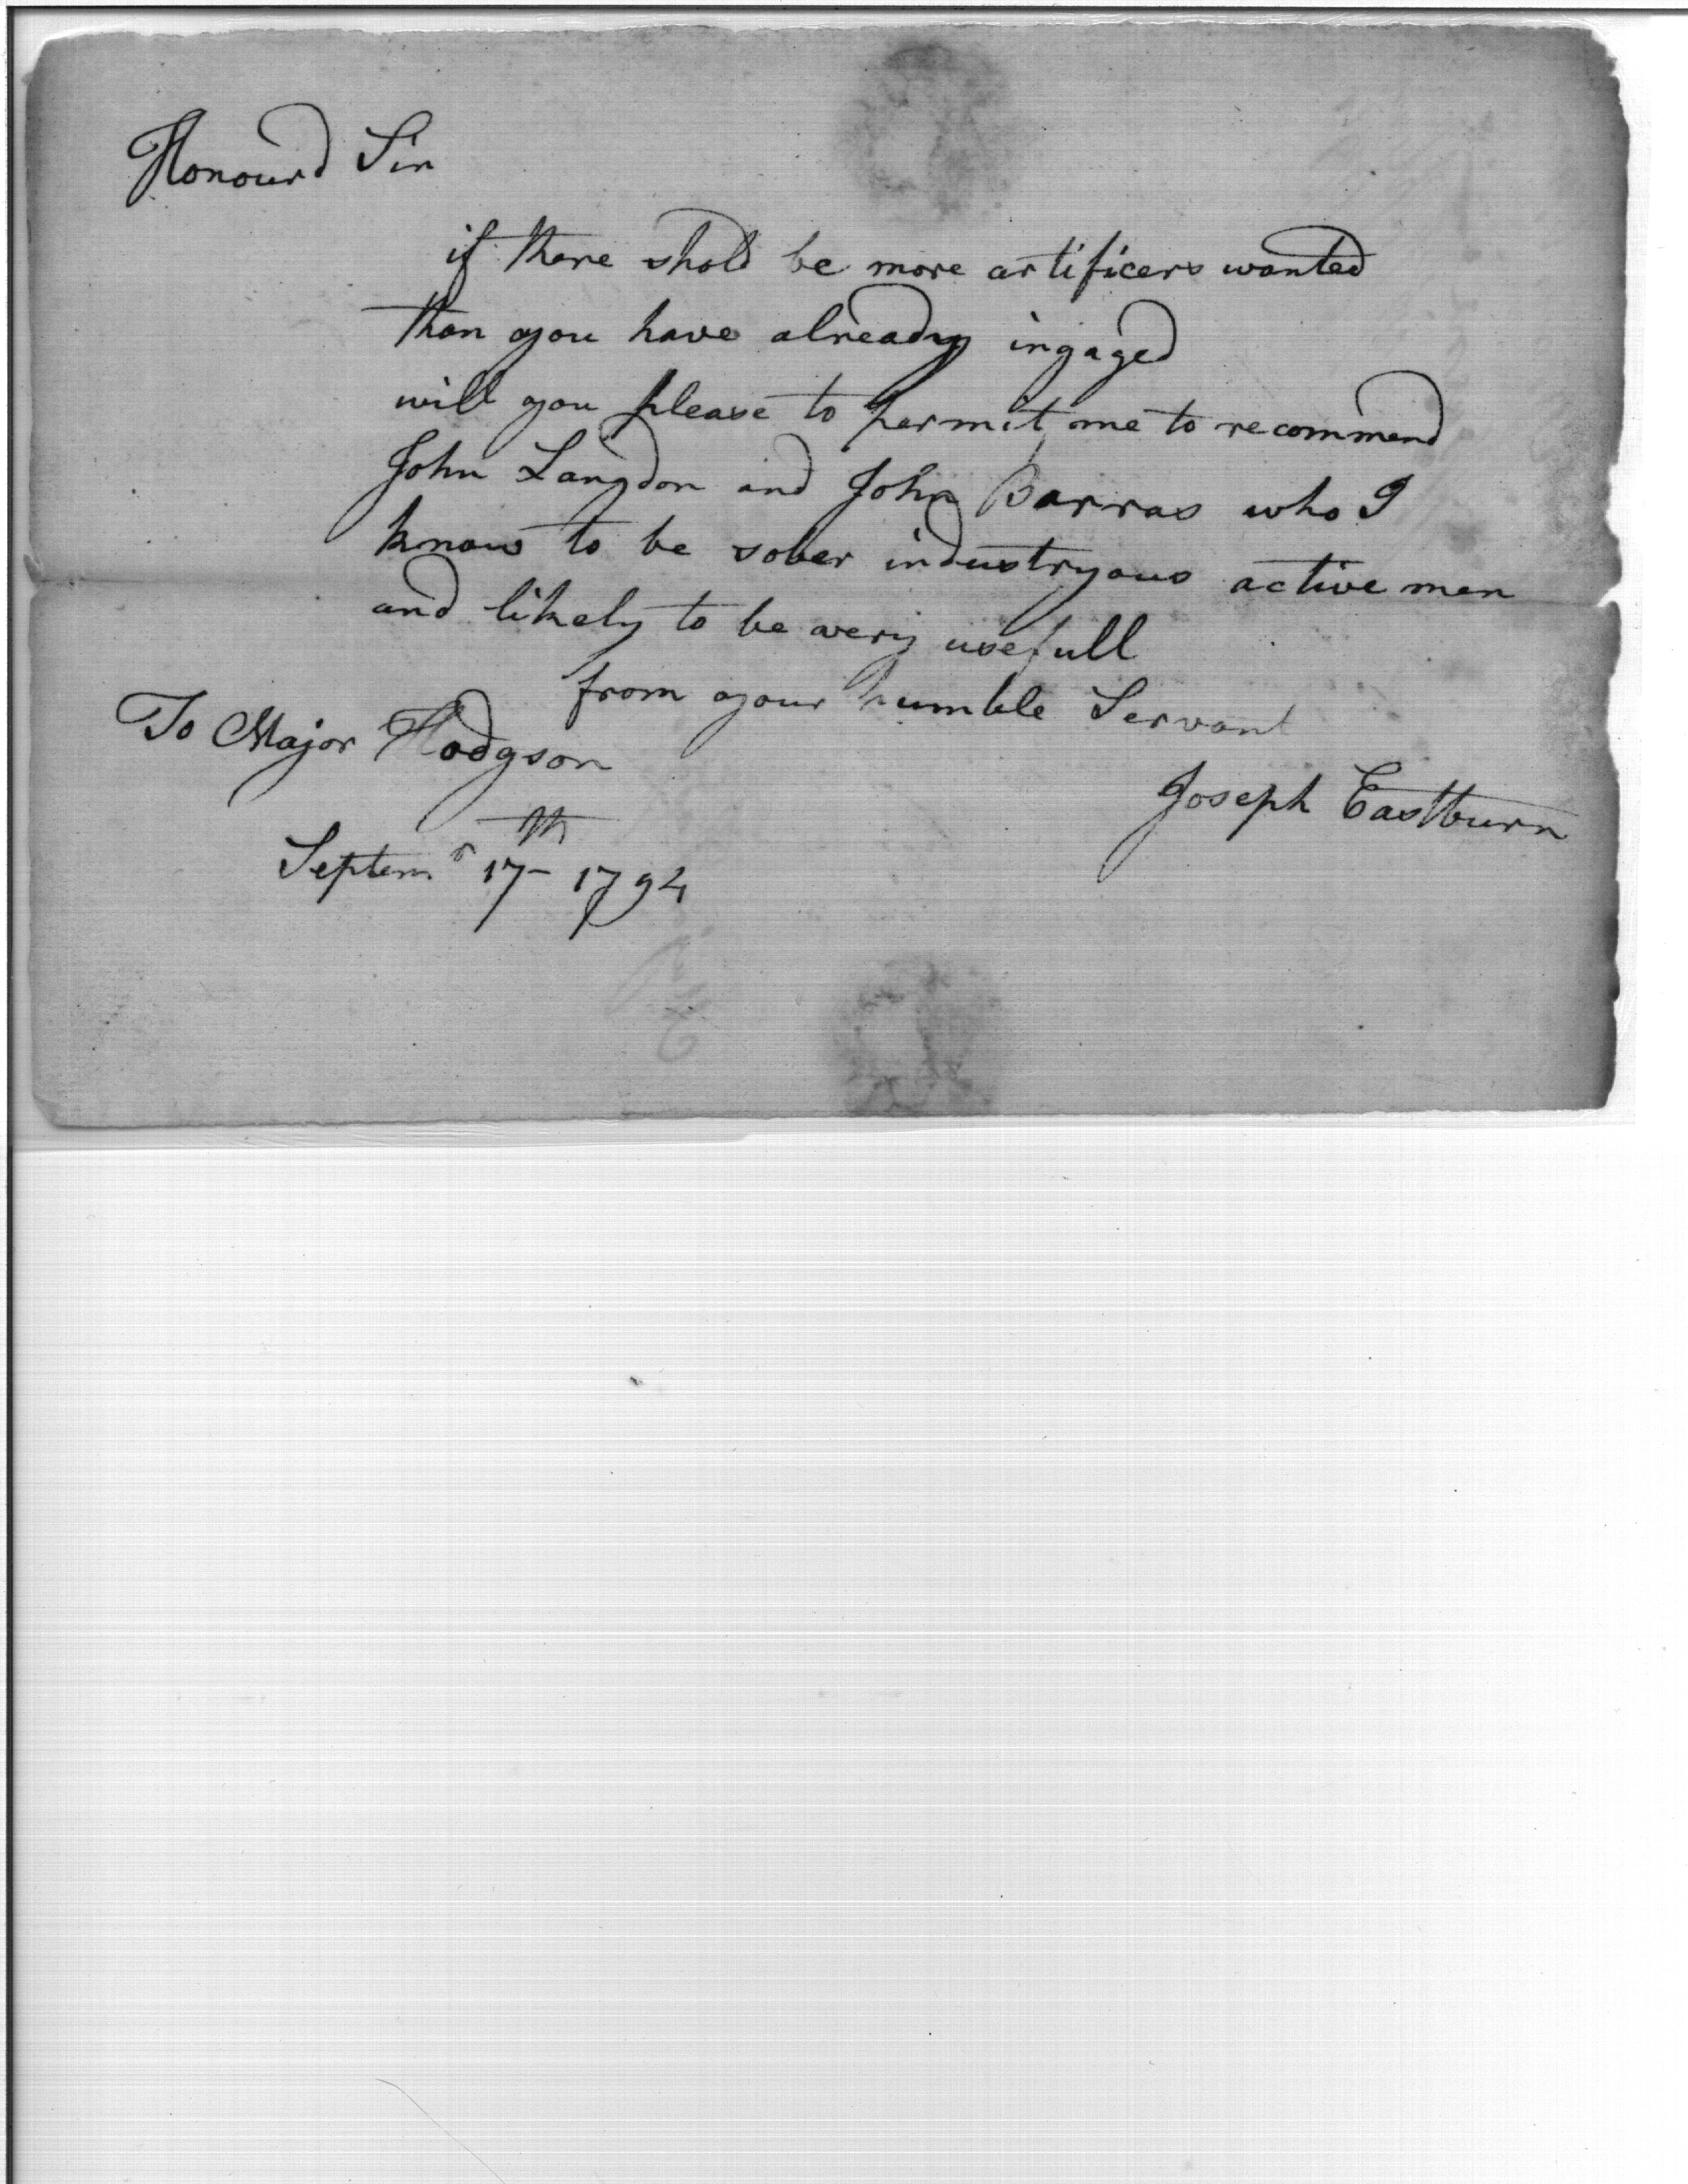 Honourd Sir
if there shold be more artificers wanted
than you have already ingaged
will you please to permit me to recommend
John Langdon and John Barras who I
know to be sober industryous active men
and likely to be very usefull
from your humble Servant
To Major Hodgson
Joseph Eastburn
Septemr 17th 1794